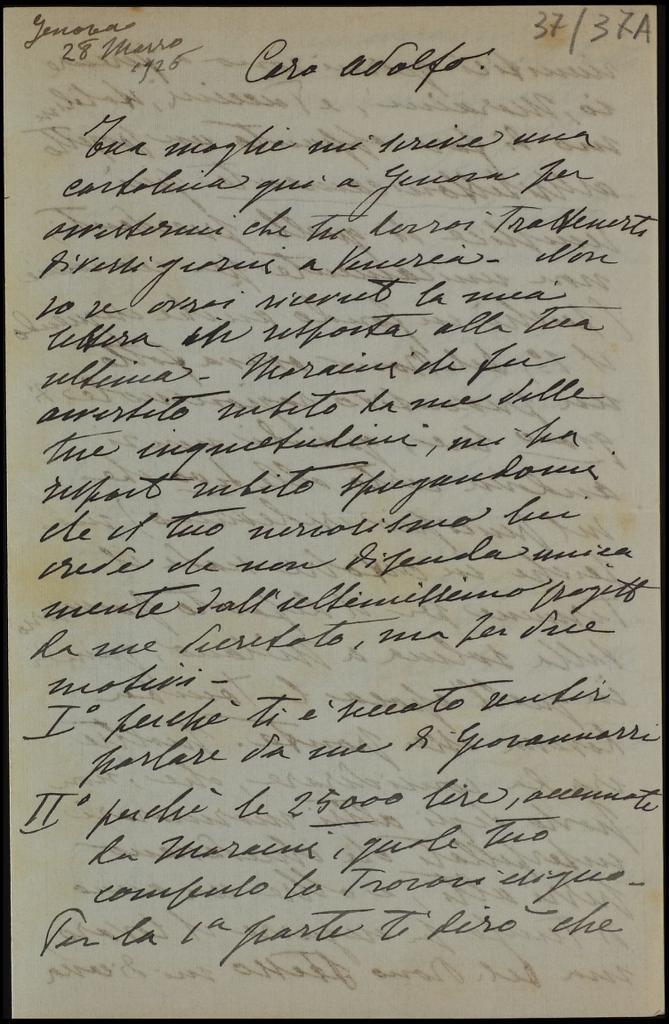 Genova
28 Marzo
1926
37/37A
Caro Adolfo!
Tua moglie mi scrive una
cartolina qui a Genova per
avvertirmi che tu dovrai trattenerti
diversi giorni a Venezia - Non
so se avrai ricevuto la mia
lettera in risposta alla tua
ultima - Maraini che fu
avvertito subito da me delle
tue inquietudini, mi ha
risposto subito spiegandomi
che il tuo nervosismo lui
crede che non dipenda unica
mente dall'ultimissimo progetto
da me , ma per due
motivi -
I° perchè ti è seccato sentir
parlare da me di Giovannozzi
II° perchè le 25000 lire, accennate
da Maraini, quale tuo
compenso le trovavi esigue -
Per la 1a parte ti dirò che